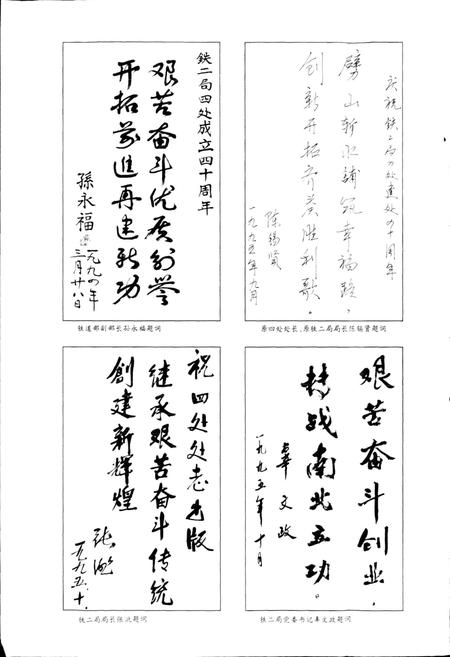 铁二局四处成立四十周年
艰苦奋斗优质创誉
开拓前进再建新功
孫永福
一九九四年
三月廿八日
铁道部副部长孙永福题词
庆祝铁二局四处建处四十周年
劈山斩水铺筑幸福路，
创新开拓齐奏胜利歌。
陈锡贤
一九九五年九月
原四处处长、原铁二局局长陈锡贤题词
祝四处处志出版
继承艰苦奋斗传统
創建新輝煌
一九九五.十.
艰苦奋斗创业，
转战南北立功。
辜文政
一九九五年十月
铁二局党委书记辜文政题词